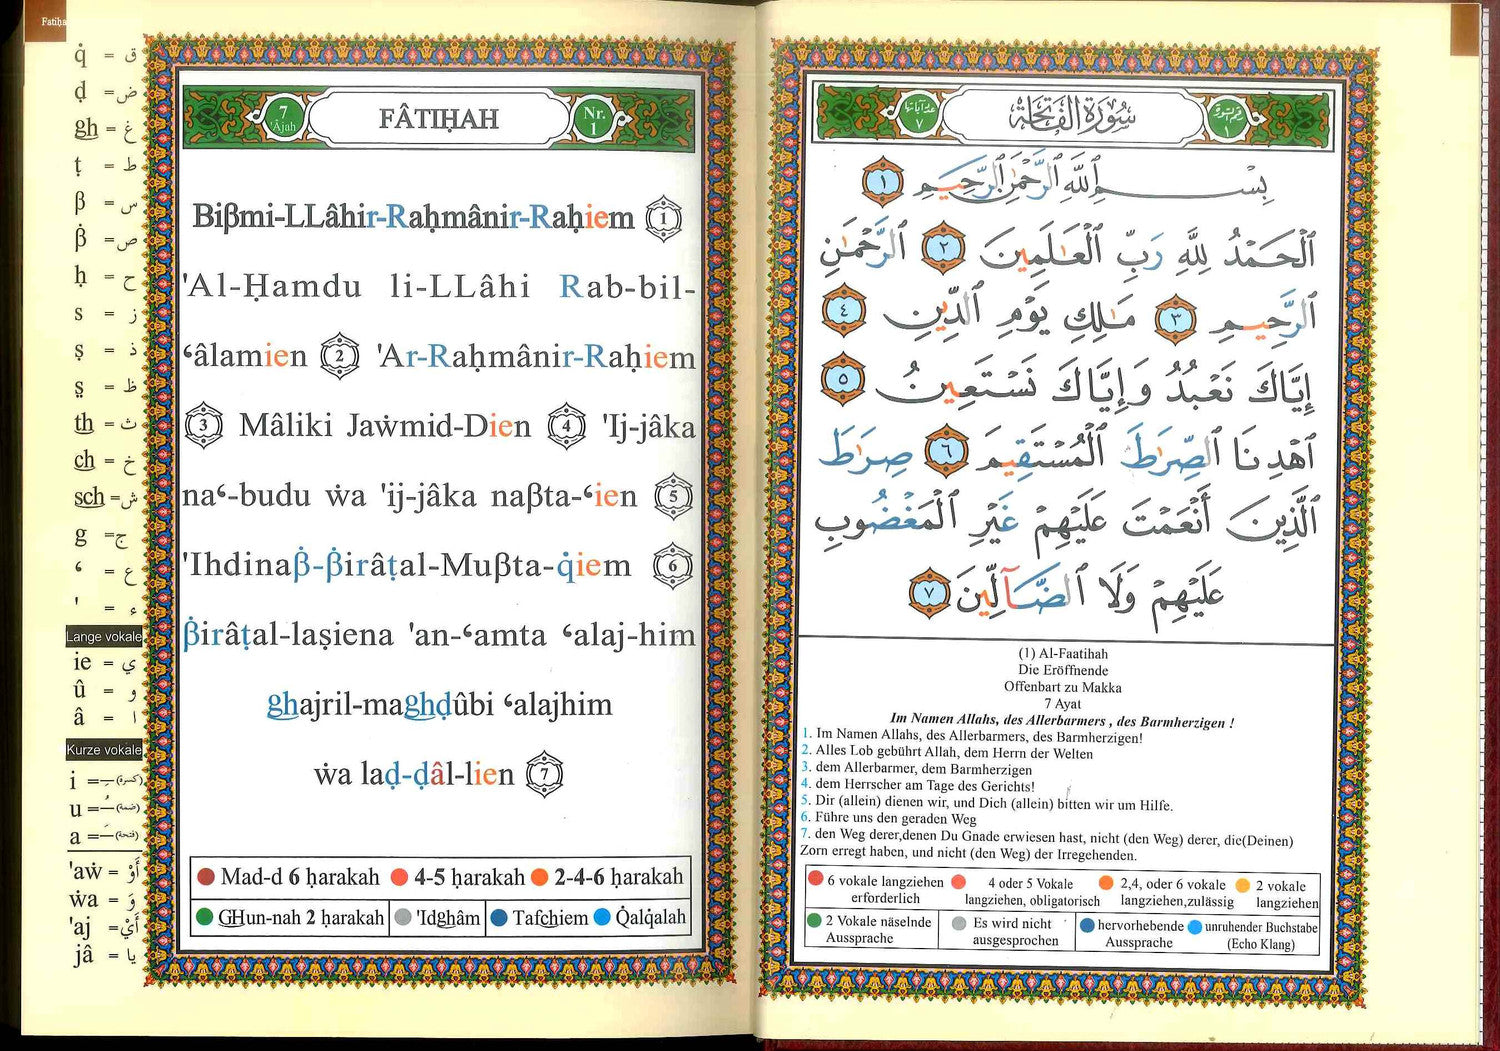 Fatiḥa
q̇ = ق
ḍ = ض
gh = غ
ṭ = ط
β = س
β̇ = ص
ḥ = ح
s = ز
ṣ = ذ
ṣ̱ = ظ
th = ث
ch = خ
sch = ش
g = ج
ʻ = ع
' = ء
Lange vokale
ie = ي
û = و
â = ا
Kurze vokale
i = ـِ (كسرة)
u = ـُ (ضمة)
a = ـَ (فتحة)
'aẇ = أَوْ
ẇa = وَ
'aj = أَيْ
jâ = يا
7 Âjah
FÂTIḤAH
Nr. 1
Biβmi-LLâhir-Raḥmânir-Raḥiem 1
'Al-Ḥamdu li-LLâhi Rab-bil-
ʻâlamien 2 'Ar-Raḥmânir-Raḥiem
3 Mâliki Jaẇmid-Dien 4 'Ij-jâka
naʻ-budu ẇa 'ij-jâka naβta-ʻien 5
'Ihdinaβ̇-β̇irâṭal-Muβta-q̇iem 6
β̇irâṭal-laṣiena 'an-ʻamta ʻalaj-him
ghajril-maghḍûbi ʻalajhim
ẇa laḍ-ḍâl-lien 7
Mad-d 6 ḥarakah 4-5 ḥarakah 2-4-6 ḥarakah
GHun-nah 2 ḥarakah 'Idghâm Tafchiem Q̇alq̇alah
عدد آياتها ٧
سُورَةُ الفَاتِحَة
رقم السورة ١
بِسْمِ ٱللَّهِ ٱلرَّحْمَٰنِ ٱلرَّحِيمِ ١
ٱلْحَمْدُ لِلَّهِ رَبِّ ٱلْعَٰلَمِينَ ٢ ٱلرَّحْمَٰنِ
ٱلرَّحِيمِ ٣ مَٰلِكِ يَوْمِ ٱلدِّينِ ٤
إِيَّاكَ نَعْبُدُ وَإِيَّاكَ نَسْتَعِينُ ٥
ٱهْدِنَا ٱلصِّرَٰطَ ٱلْمُسْتَقِيمَ ٦ صِرَٰطَ
ٱلَّذِينَ أَنْعَمْتَ عَلَيْهِمْ غَيْرِ ٱلْمَغْضُوبِ
عَلَيْهِمْ وَلَا ٱلضَّآلِّينَ ٧
(1) Al-Faatihah
Die Eröffnende
Offenbart zu Makka
7 Ayat
Im Namen Allahs, des Allerbarmers , des Barmherzigen !
1. Im Namen Allahs, des Allerbarmers, des Barmherzigen!
2. Alles Lob gebührt Allah, dem Herrn der Welten
3. dem Allerbarmer, dem Barmherzigen
4. dem Herrscher am Tage des Gerichts!
5. Dir (allein) dienen wir, und Dich (allein) bitten wir um Hilfe.
6. Führe uns den geraden Weg
7. den Weg derer,denen Du Gnade erwiesen hast, nicht (den Weg) derer, die(Deinen)
Zorn erregt haben, und nicht (den Weg) der Irregehenden.
6 vokale langziehen erforderlich
4 oder 5 Vokale langziehen, obligatorisch
2,4, oder 6 vokale langziehen,zulässig
2 vokale langziehen
2 Vokale näselnde Aussprache
Es wird nicht ausgesprochen
hervorhebende Aussprache
unruhender Buchstabe (Echo Klang)